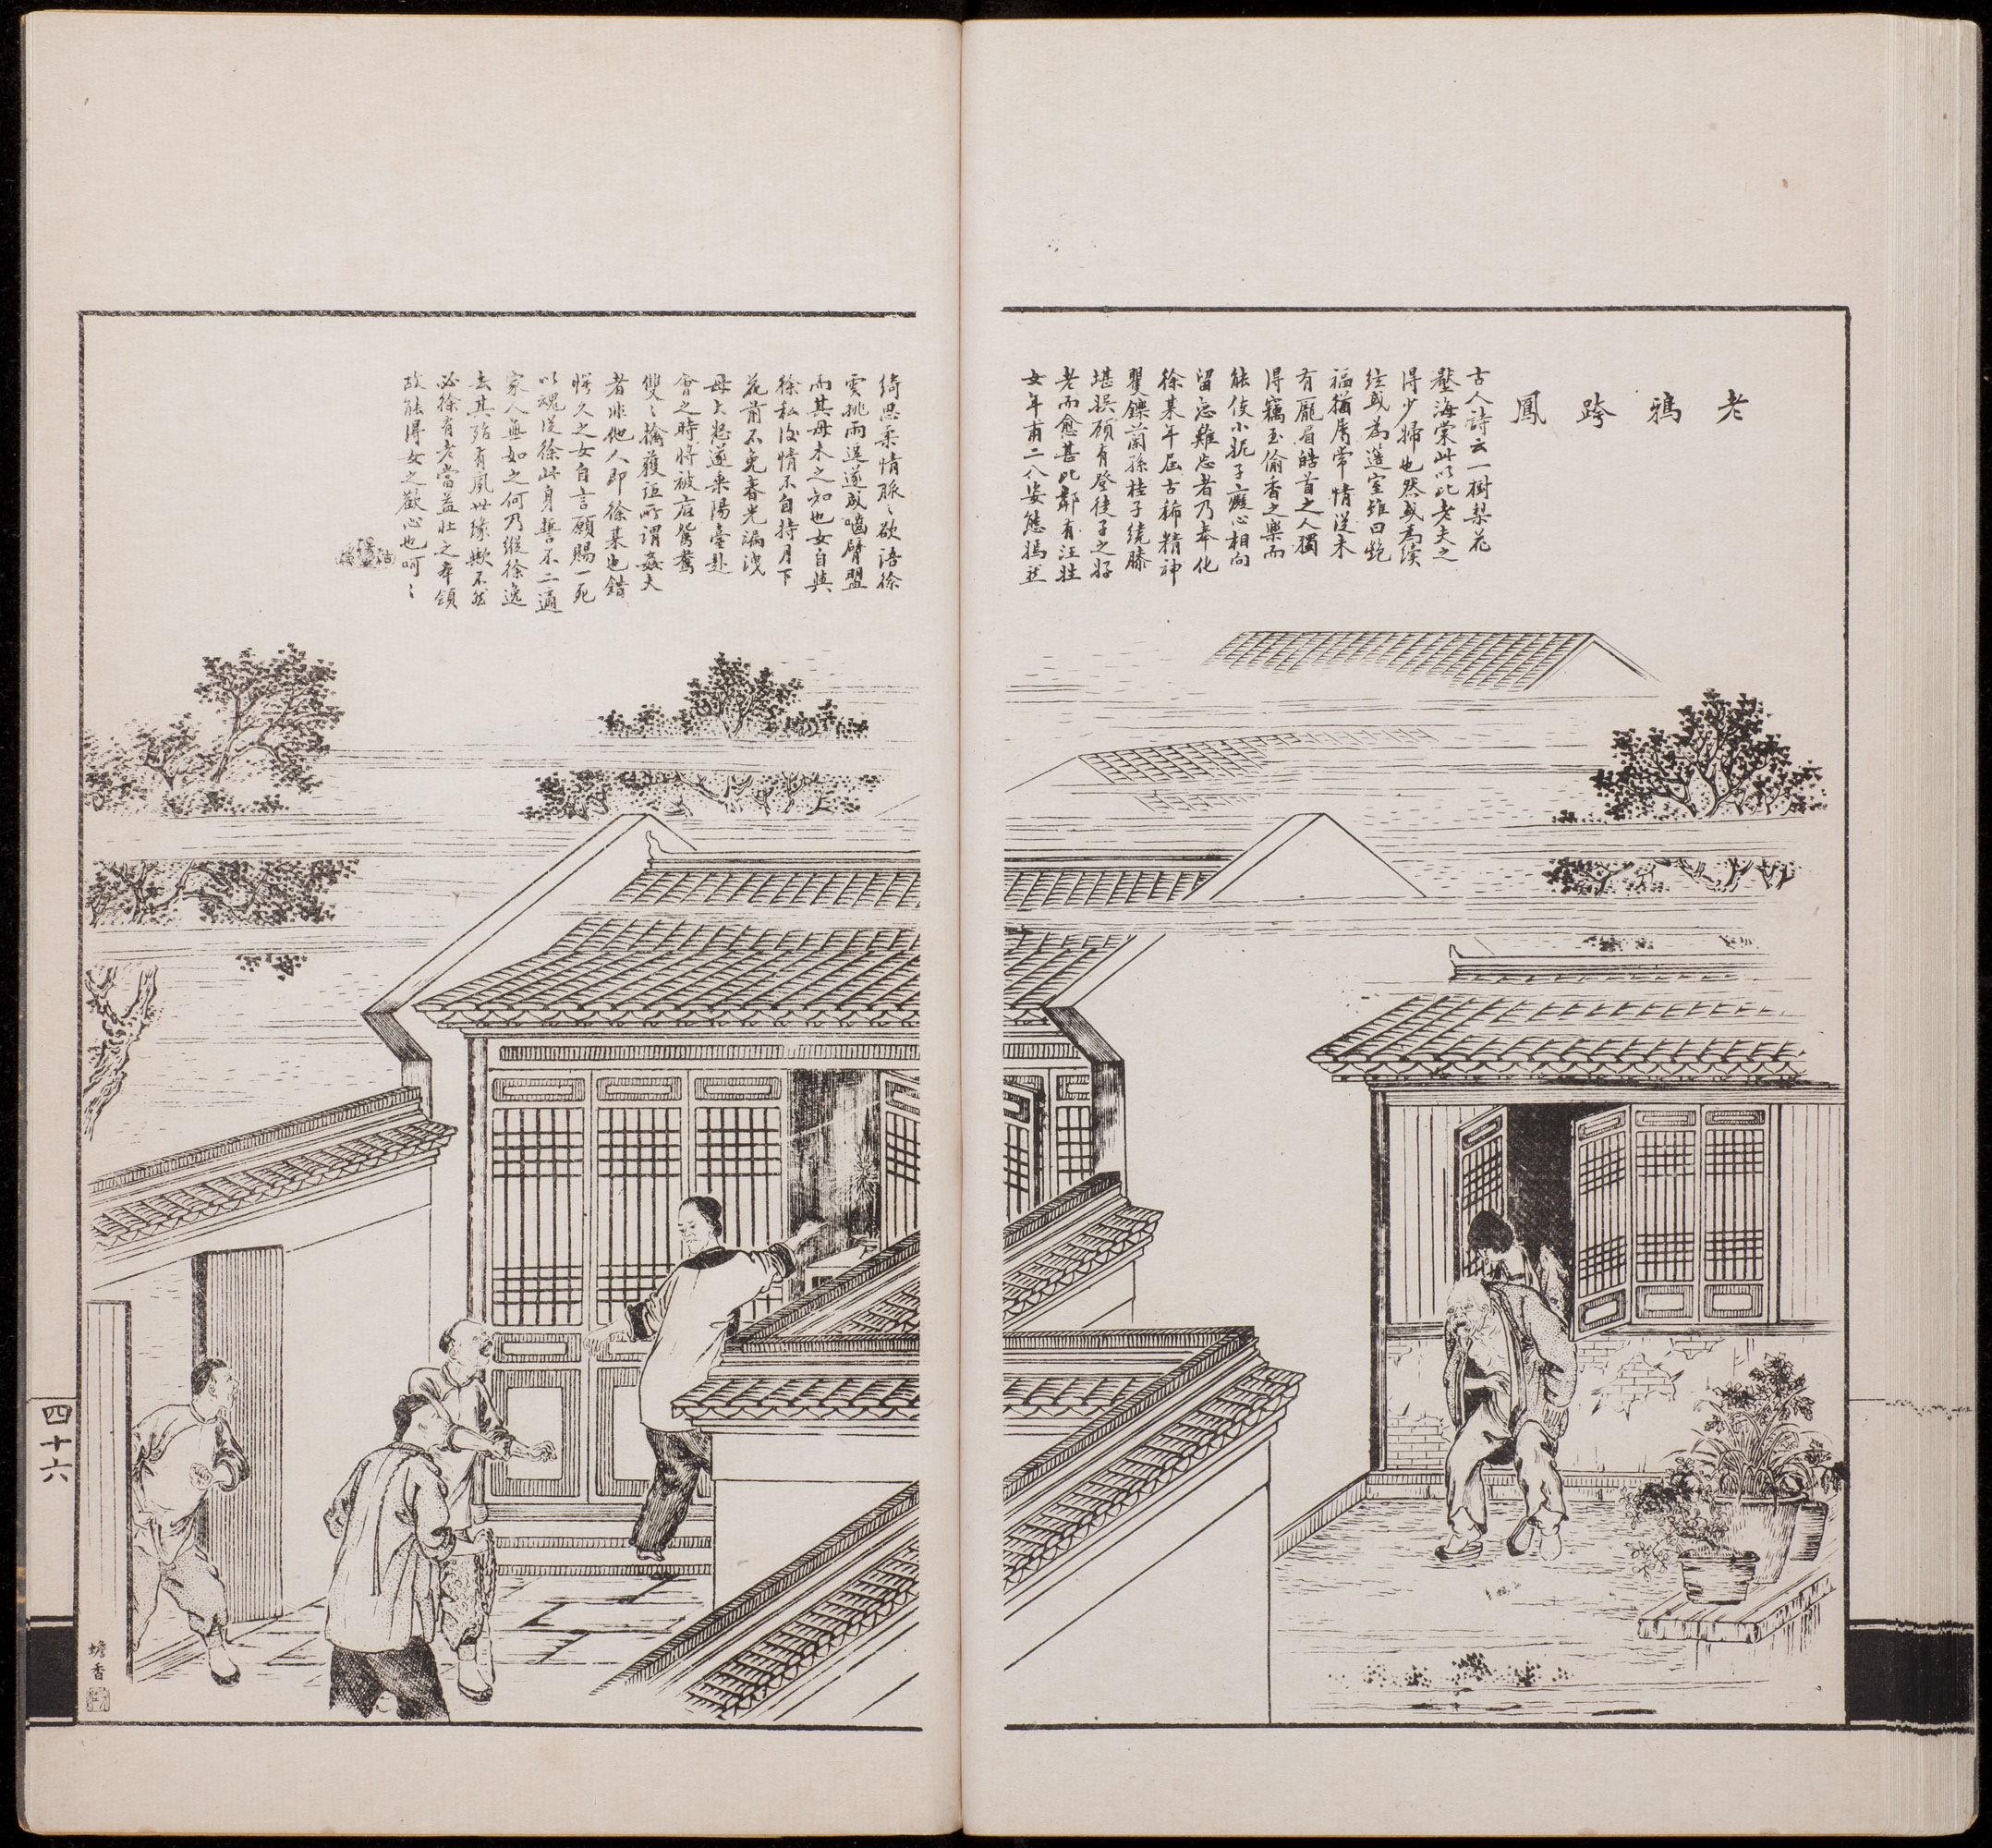 老鴉跨鳳
古人詩云一樹梨花
壓海棠此以比老夫之
得少婦也然或為續
絃或為簉室雖曰艷
福猶屬常情從未
有龐眉皓首之人獨
得竊玉偷香之樂而
能使小妮子癡心相向
留戀難忘者乃奉化
徐某年屆古稀精神
矍鑠蘭孫桂子繞膝
堪娛顧有登徒子之好
老而愈甚比鄰有汪姓
女年甫二八姿態嫣然
綺思柔情脈〻欲語徐
雲挑雨逗遂成嚙臂盟
而其母未之知也女自與
徐私後情不自持月下
花前不免春光漏洩
母大怒遂乘陽臺赴
會之時將被底鴛鴦
雙〻擒獲詎所謂姦夫
者非他人即徐某也錯
愕久之女自言願賜一死
以魂從徐此身誓不二適
家人無如之何乃縱徐逸
去其殆有夙世緣歟不然
必徐有老當益壯之本領
故能得女之歡心也呵〻
四十六
蟾香